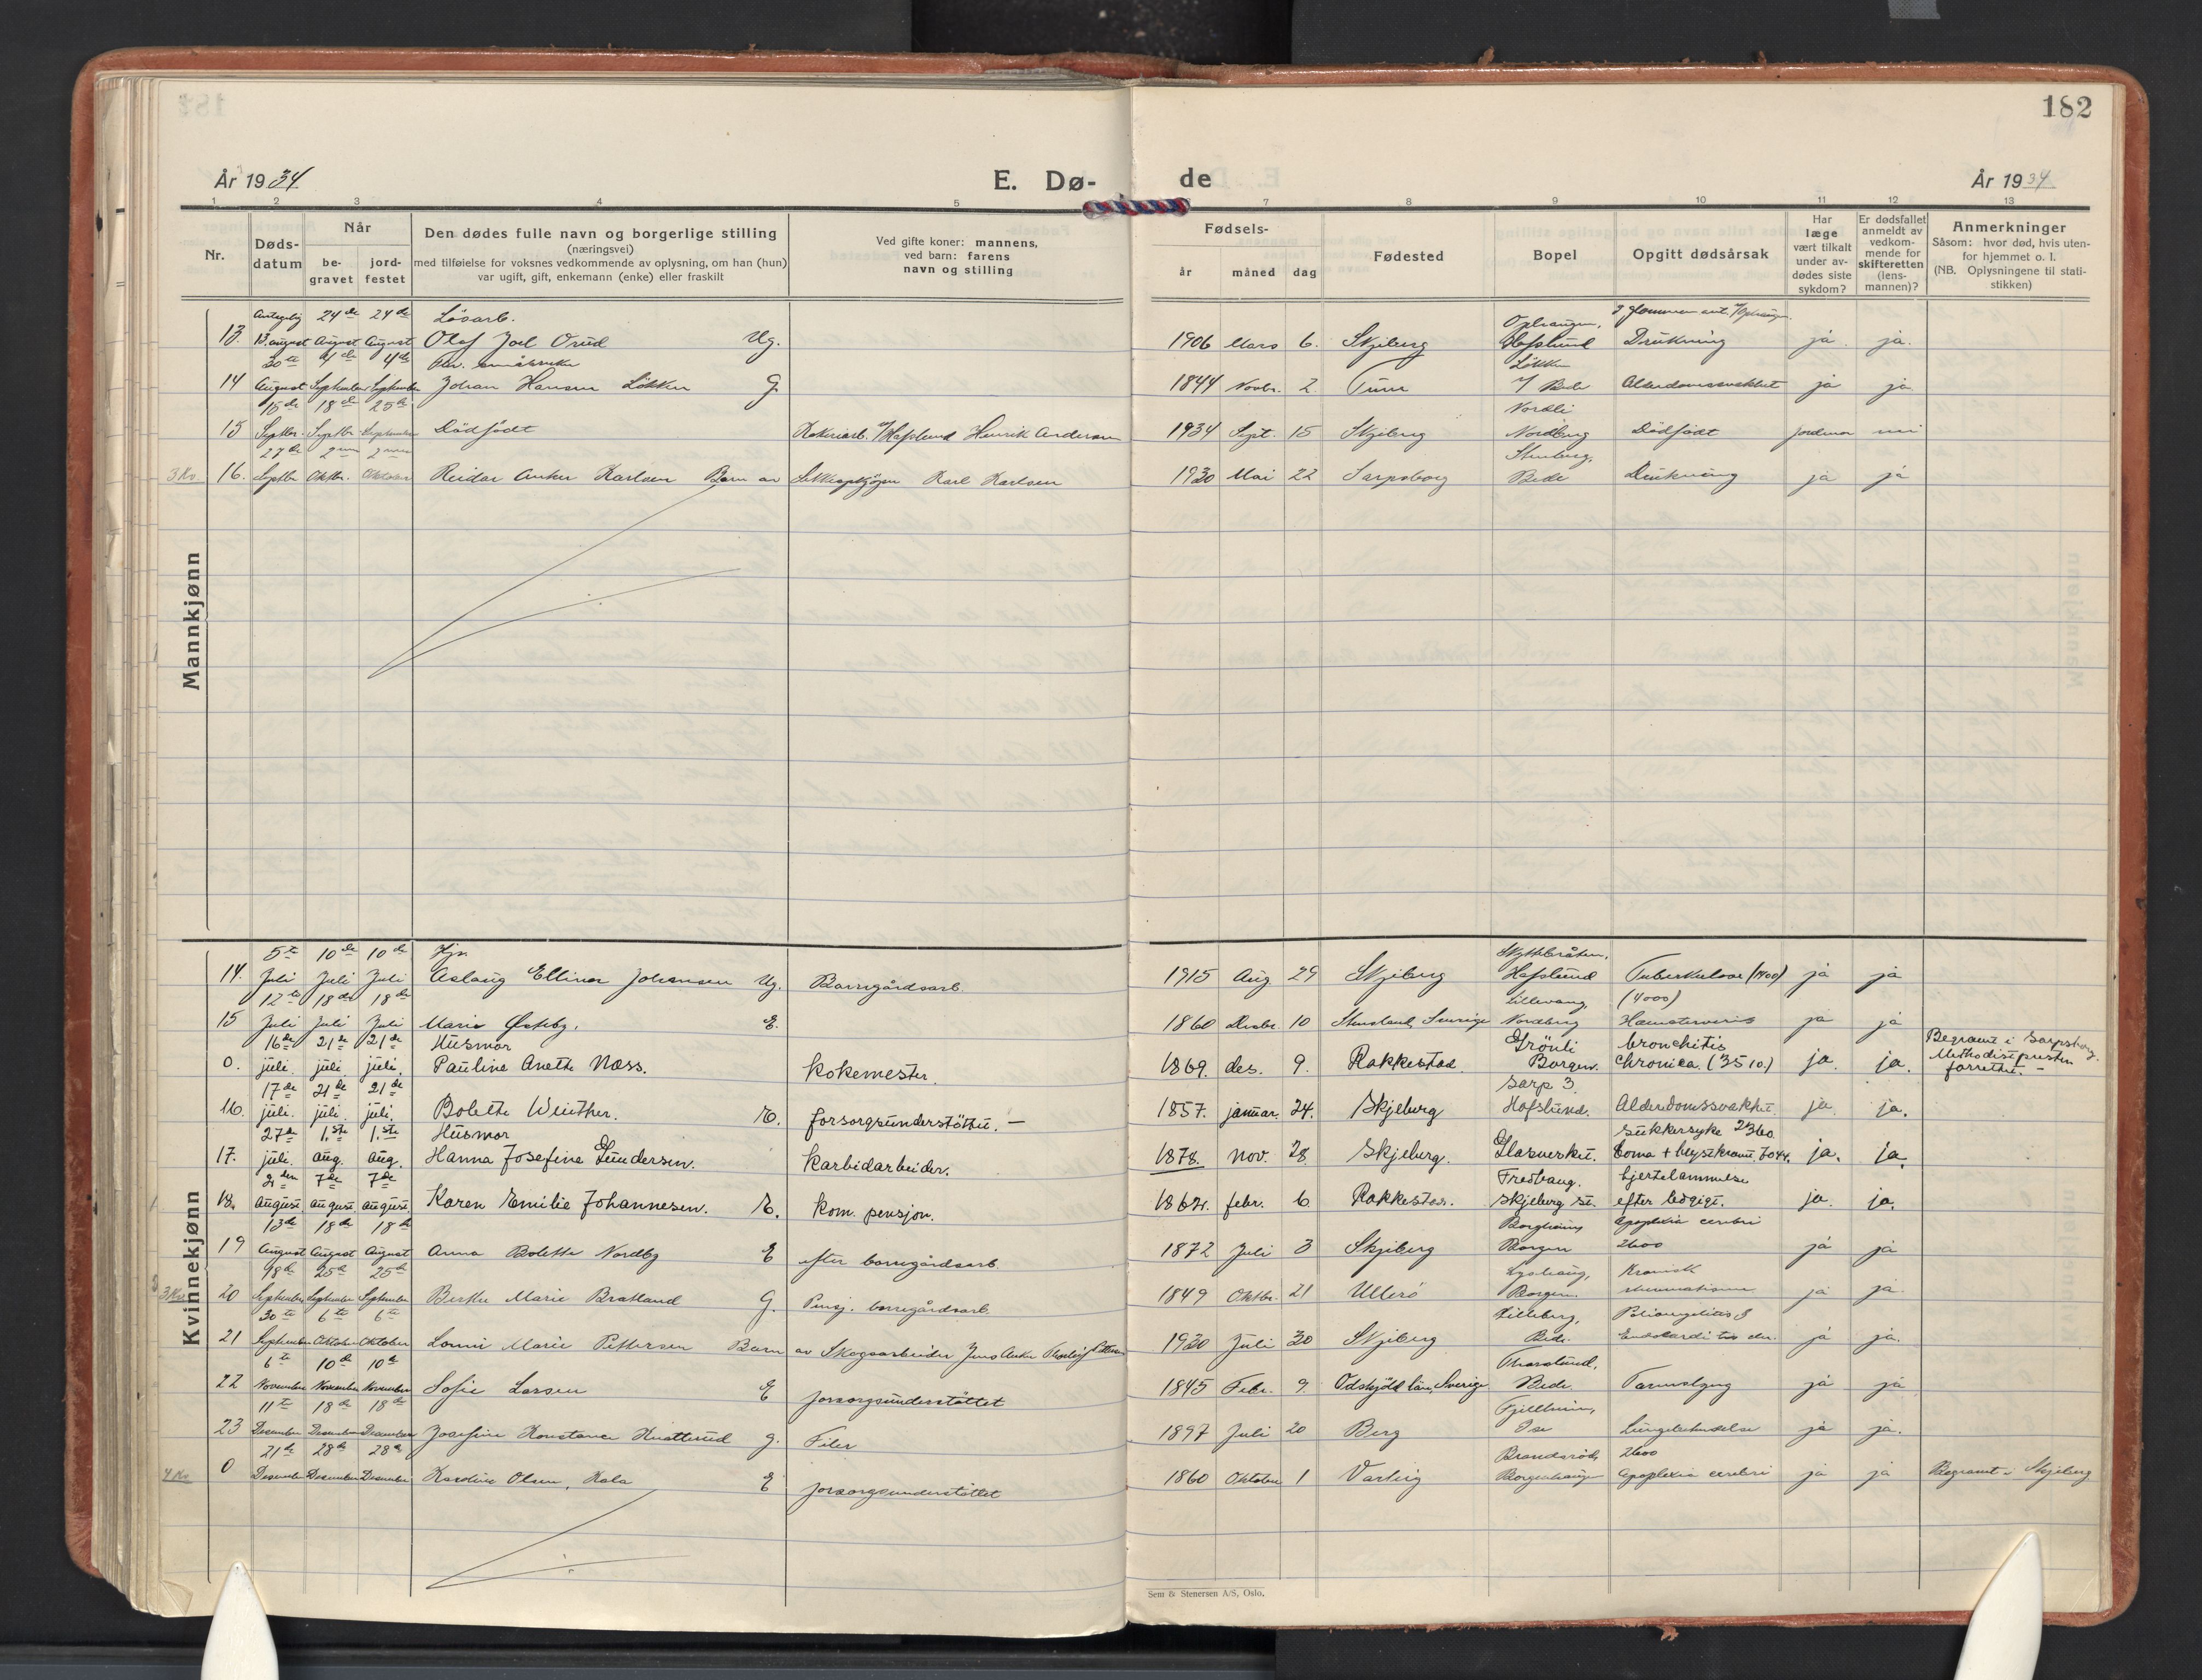 182
År 1934
E. Dø-
de
År 1934
1 2 3 4 5 7 8 9 10 11 12 13
Nr.
Døds-
datum
Når
be-
gravet
jord-
festet
Den dødes fulle navn og borgerlige stilling
(næringsvei)
med tilføielse for voksnes vedkommende av oplysning, om han (hun)
var ugift, gift, enkemann (enke) eller fraskilt
Ved gifte koner: mannens,
ved barn: farens
navn og stilling
Fødsels-
år måned dag
Fødested
Bopel
Opgitt dødsårsak
Har
læge
vært tilkalt
under av-
dødes siste
sykdom?
Er dødsfallet
anmeldt av
vedkom-
mende for
skifteretten
(lens-
mannen)?
Anmerkninger
Såsom: hvor død, hvis uten-
for hjemmet o. l.
(NB. Oplysningene til stati-
stikken)
Mannkjønn
Antagelig 24de 24de Løsarb.
13. 13. august August August Olaf Joel Orud Ug. 1906 Mars 6. Skjeberg Hafslund Drukning ja. ja.
30te 4de 4de
14 August September September Johan Hansen Løkken G. 1844 Novbr. 2 Tune Løkken Bede Alderdomssvakhet ja ja
15de 18de 25de
15 Septbr. Septbr. September Dødfødt Hafslund Henrik Andersen 1934 Sept. 15 Skjeberg Nordli Nordberg Dødfødt Jordmor nei
27de 2nen 2nen
3 Kv. 16. Septbr Oktbr. Oktober Reidar Anker Karlsen Barn av Karl Karlsen 1930 Mai 22 Sarpsborg Stenberg, Bede Drukning ja ja
Kvinnekjønn
5te 10de 10de Hjp.
14. Juli Juli Juli Aslaug Ellinor Johansen Ug. Borregårdsarb. 1915 Aug 29 Skjeberg Hafslund Tuberkulose (1400) ja ja
12te 18de 18de Lillevang, (4000)
15 Juli Juli Juli Marie Østeby. E. 1860 Desbr. 10 Sverige Nordberg ja ja
16de 21de 21de Husmor Grönli bronchitis
0. juli. juli. juli. Pauline Anette Næss. kokemester. 1869. des. 9. Rakkestad. Borgen. chronica. (3510.) ja. ja. Begravet i Sarpsborg. Methodistpresten forrettet. —
17de 21de 21de Sarp 3
16. juli. juli. juli. Bolette Winther. E. forsorgsunderstöttet. — 1857. januar. 24. Skjeberg Hafslund. Alderdomssvakhet. ja. ja.
27de 1.ste 1.ste Husmor Sukkersyke 2360.
17. juli. aug. aug. Hanna Josefine Gundersen. karbidarbeider. 1878. nov. 28. Skjeberg. Glasverket. Coma + ja. ja.
2den 7de 7de Fredhaug. hjertelammelse
18. august. august. august. Karen Emilie Johannesen. E. kom. pensjon. 1864. febr. 6 Rakkestad. Skjeberg st. efter ja. ja.
13de 18de 18de Borgheim, Apoplexia cerebri
19 August August August Anna Bolette Nordby E efter borregårdsarb. 1872 Juli 3 Skjeberg Borgen 2600 ja ja
18de 25de 25de Kronisk
3 Kv. 20 September September September Berthe Marie Bratland G. Pensj. borregårdsarb. 1849 Oktbr. 21 Ullerö Borgen rheumatisme ja ja.
30te 6te 6te Lilleberg,
21 September Oktober Oktober Lonni Marie Pettersen Barn av Skogsarbeider Jens Anker Pettersen 1930 Juli 30 Skjeberg Bede. ja ja.
6te 10de 10de
22 November November November Sofie Larsen E forsorgsunderstöttet 1845 Febr. 9. Sverige Bede. ja ja
11te 18de 18de Fjellheim,
23 Desember Desember Desember Josefine Konstance Knatterud g. Filer 1897 Juli 20 Berg Ise Lungebetendelse ja ja.
21de 28de 28de 2600
4 Kv. 0 Desember Desember Desember Karoline Olsen, Kala E forsorgsunderstöttet 1860 Oktober 1 Varteig Apoplexia cerebri ja ja Begravet i Skjeberg
Sem & Stenersen A/S, Oslo.